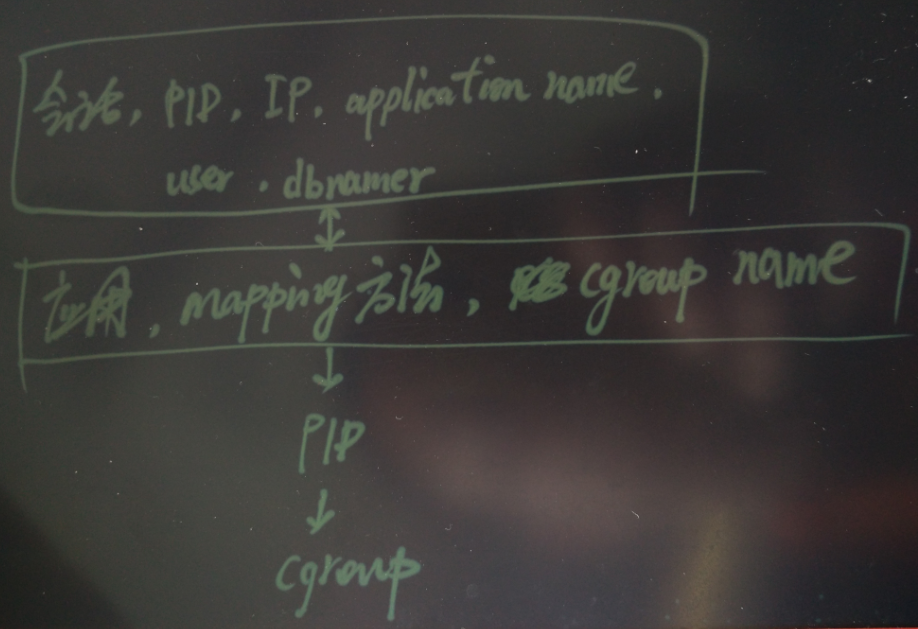 会话, PID, IP, application name.
user. dbnamer
应用, mapping 方法, cgroup name
PID
cgroup